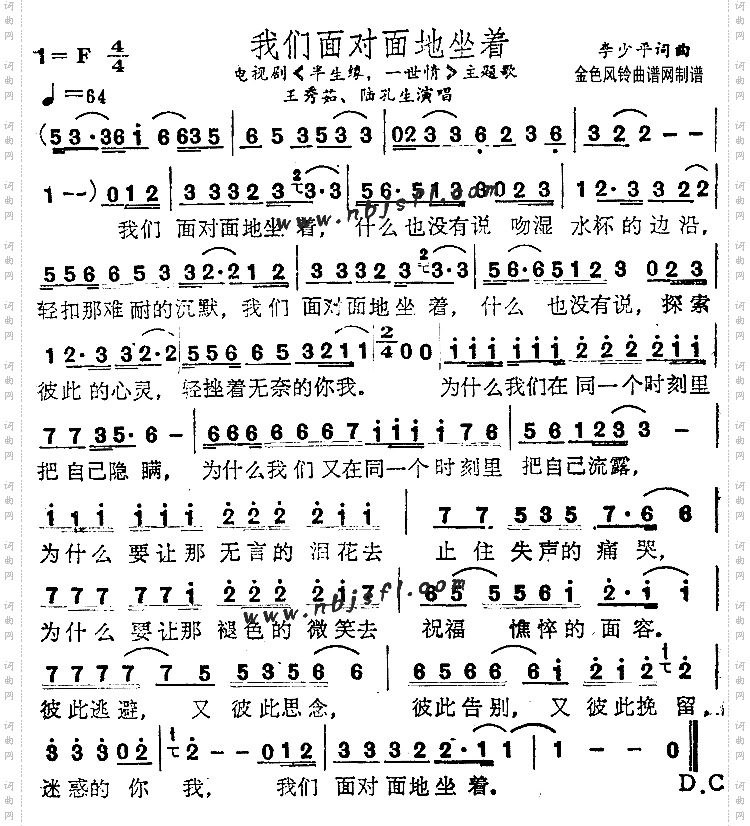 我们面对面地坐着
1=F 4/4
李少平词曲
电视剧《半生缘,一世情》主题歌
金色风铃曲谱网制谱
♩=64
王秀茹、陆孔生演唱
(53·36i 6635 | 6 5 3533 | 0233 6236 | 322 - - |
1--)012 | 33323 3·3 | 56·5133023 | 12·3322 |
我们 面对面地坐着, 什么也没有说 吻湿 水杯的边沿,
www.nbjsfl.com
5566 53 32·212 | 333 23 3·3 | 56·65123 023 |
轻扣那难耐的沉默,我们 面对面地坐着, 什么 也没有说,探索
12·3 32·2 | 556 65 3211 | 2/4 00 | iiii iii 2222ii |
彼此 的心灵, 轻挫着无奈的你我。 为什么我们在同一个时刻里
7 7 35·6 - | 666666 67iiii i76 | 5 6 1233 - |
把自己隐瞒, 为什么我们又在同一个时刻里 把自己流露,
iii iii 222 2ii | 77 535 7·66 |
为什么 要让那 无言的 泪花去 止住失声的痛哭,
777 77i 222 2i7 | 65 556i 2·ii |
为什么 要让那 褪色的 微笑去 祝福 憔悴的面容。
www.nbjsfl.com
7777 75 53566 | 656666i 2i22 |
彼此逃避, 又彼此思念, 彼此告别, 又彼此挽留,
33302 | 2--012 | 33332 22·11 | 1--0 ‖
迷惑的你 我, 我们 面对面地坐着。
D.C
词曲网